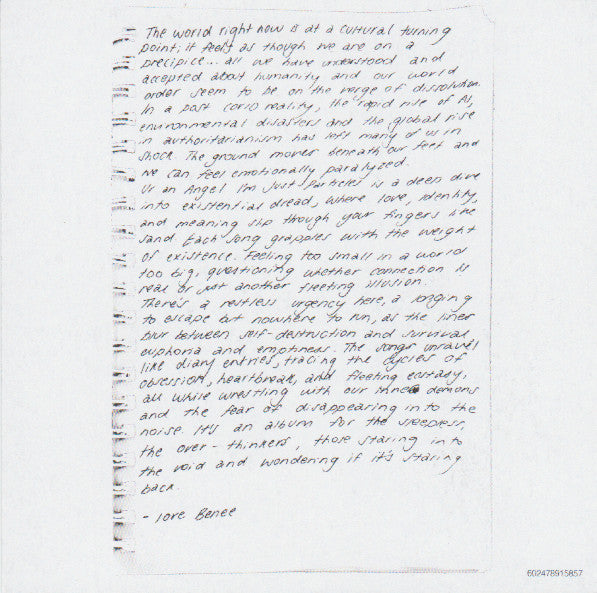 The world right now is at a cultural turning
point; it feels as though we are on a
precipice... all we have understood and
accepted about humanity and our world
order seem to be on the verge of dissolution.
In a post covid reality, the rapid rise of AI,
environmental disasters and the global rise
in authoritarianism has left many of us in
shock. The ground moves beneath our feet and
we can feel emotionally paralyzed.
Ur an Angel I'm Just Particles is a deep dive
into existential dread, where love, identity,
and meaning slip through your fingers like
sand. Each song grapples with the weight
of existence. Feeling too small in a world
too big, questioning whether connection is
real or just another fleeting illusion.
There's a restless urgency here, a longing
to escape but nowhere to run, as the lines
blur between self-destruction and survival,
euphoria and emptiness. The songs unravel
like diary entries, tracing the cycles of
obsession, heartbreak, and fleeting ecstasy,
all while wrestling with our inner demons
and the fear of disappearing into the
noise. It's an album for the sleepless,
the over-thinkers, those staring into
the void and wondering if it's staring
back.
- love Benee
602478915857